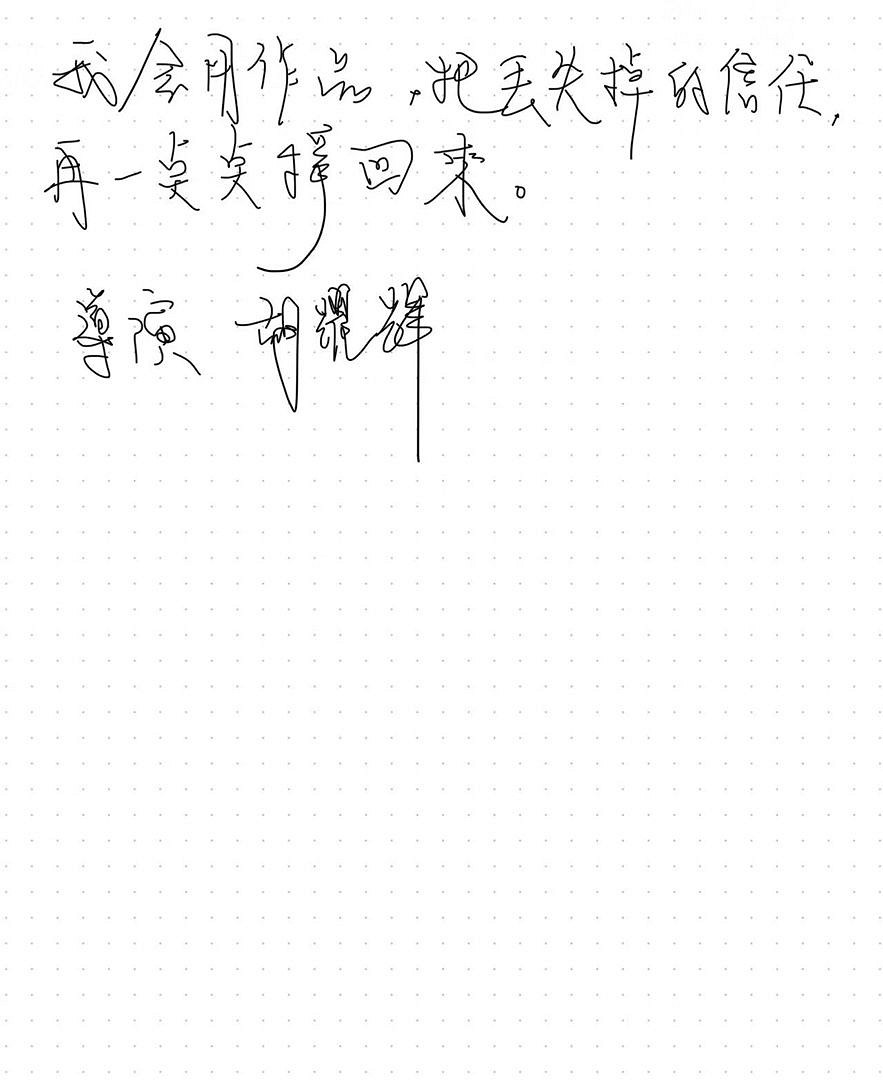 我会用作品,把丢失掉的信任,
再一点点挣回來。
導演 胡耀輝